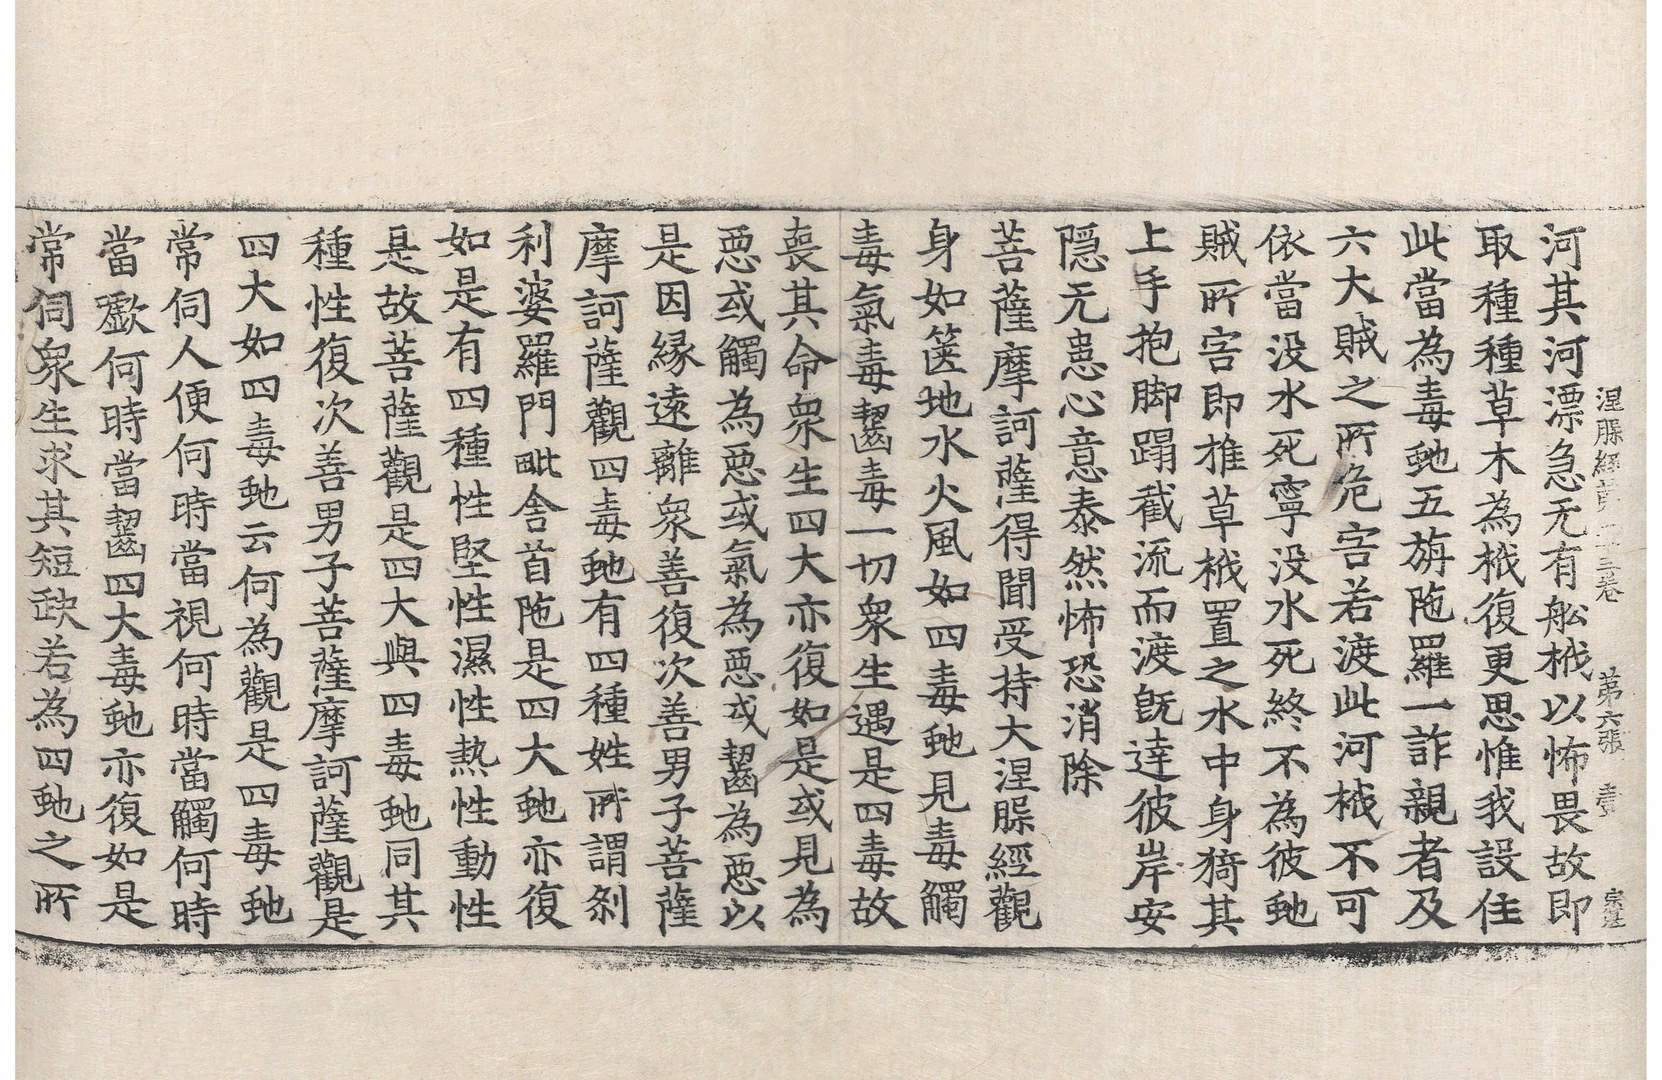 涅槃經第二十三卷　第六張　壹　宗誕
河其河漂急无有舩栰以怖畏故即
取種種草木為栰復更思惟我設住
此當為毒虵五旃陁羅一詐親者及
六大賊之所危害若渡此河栰不可
依當没水死寧没水死終不為彼虵
賊所害即推草栰置之水中身猗其
上手抱脚蹋截流而渡既達彼岸安
隠无患心意泰然怖恐消除
菩薩摩訶薩得聞受持大涅槃經觀
身如篋地水火風如四毒虵見毒觸
毒氣毒齧毒一切衆生遇是四毒故
喪其命衆生四大亦復如是或見為
惡或觸為惡或氣為惡或齧為惡以
是因縁遠離衆善復次善男子菩薩
摩訶薩觀四毒虵有四種姓所謂剎
利婆羅門毗舍首陁是四大虵亦復
如是有四種性堅性濕性熱性動性
是故菩薩觀是四大與四毒虵同其
種性復次善男子菩薩摩訶薩觀是
四大如四毒虵云何為觀是四毒虵
常伺人便何時當視何時當觸何時
當歠何時當齧四大毒虵亦復如是
常伺衆生求其短缺若為四虵之所